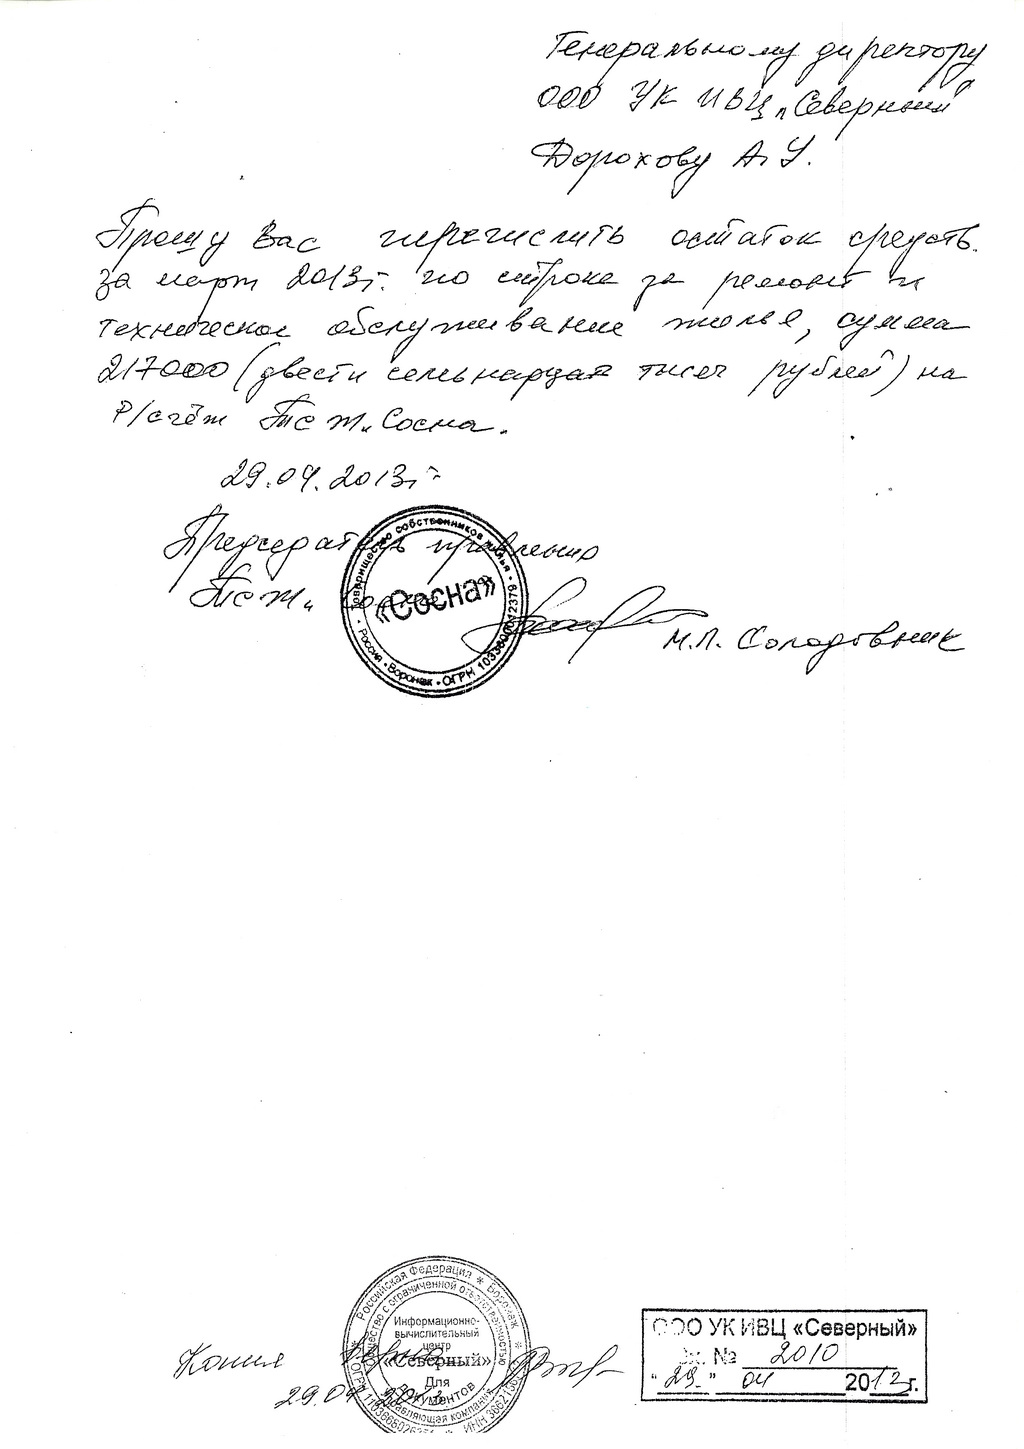 Генеральному директору
ООО УК ИВЦ „Северный"
Дорохову А. У.
Прошу Вас перечислить остаток средств.
за март 2013г. по строке за ремонт и
техническое обслуживание жилья, сумма
217000 (двести семьнадцат тысеч рублей) на
Р/счёт ТСЖ „Сосна.
29.04.2013г
Председатель правления
ТСЖ „
М.Л. Солодовник
Товарищество собственников жилья
«Сосна»
Россия • Воронеж • ОГРН
Копия верна
29.04.2013
Российская Федерация * Воронеж *
Общество с ограниченной ответственностью
Информационно-
вычислительный
центр
«Северный»
Для
документов
Управляющая компания
ООО УК ИВЦ «Северный»
Вх. № 2010
"29" 04 2013г.